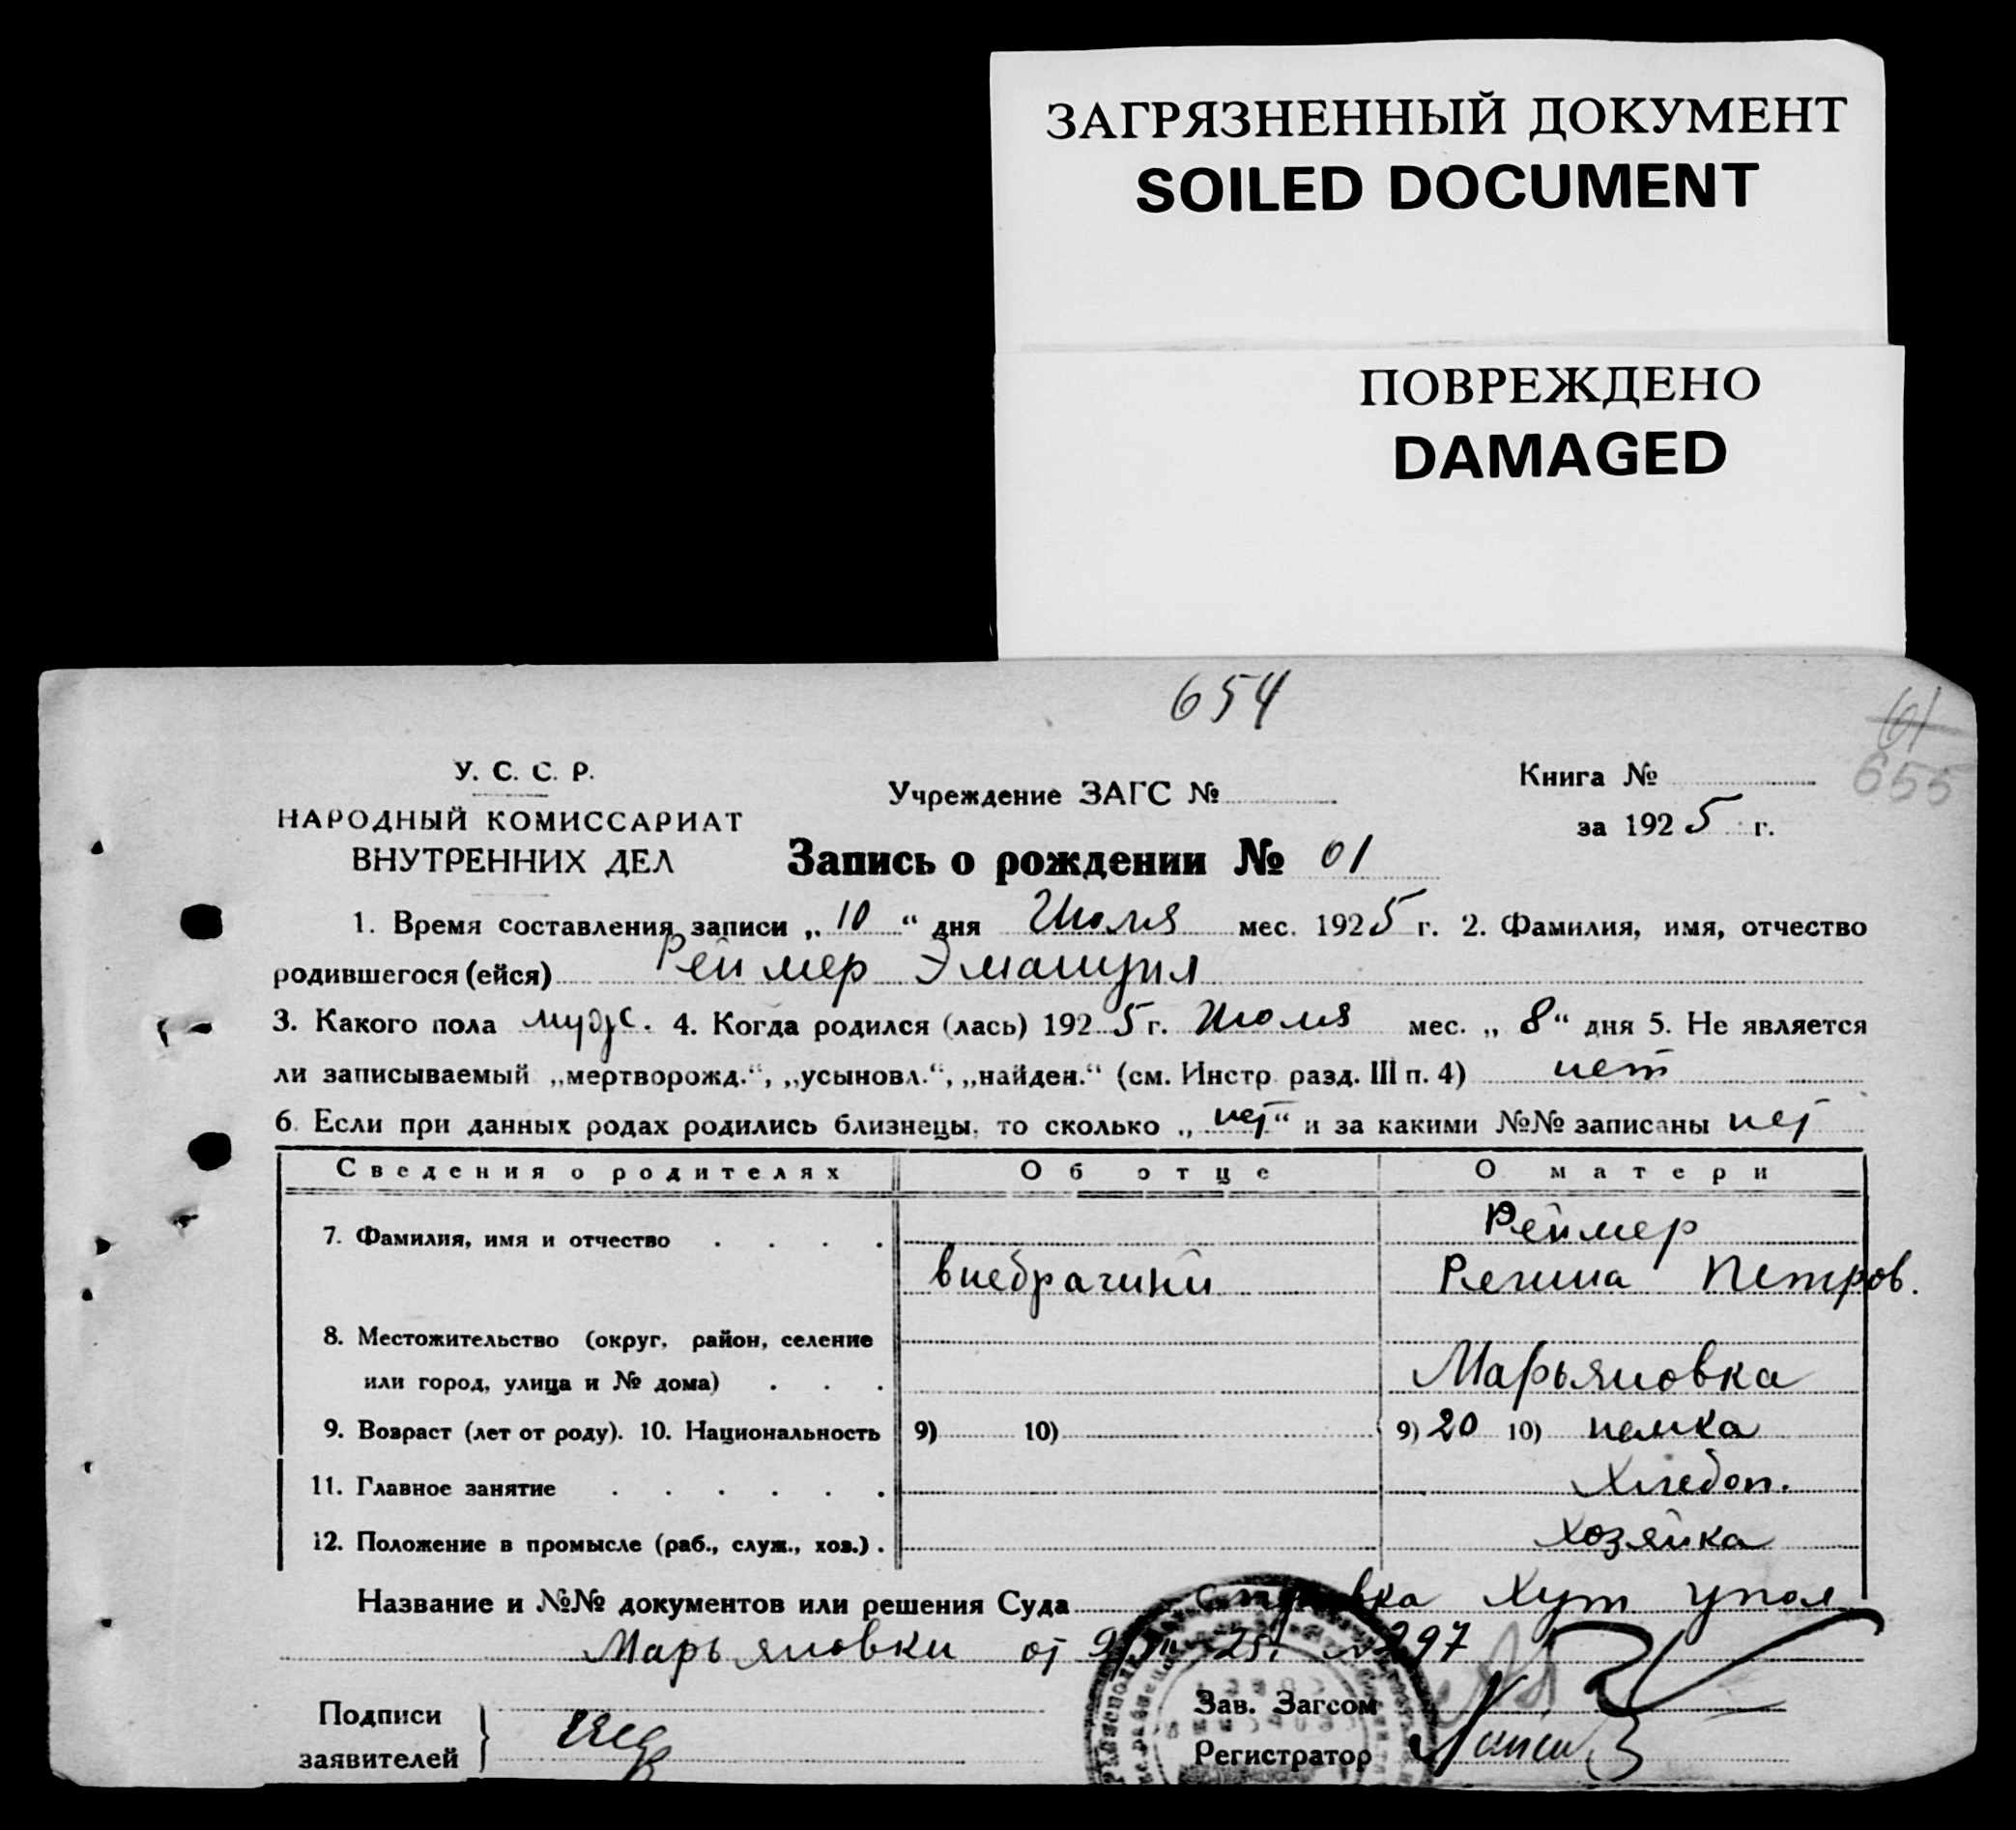 ЗАГРЯЗНЕННЫЙ ДОКУМЕНТ
SOILED DOCUMENT
ПОВРЕЖДЕНО
DAMAGED
654
61
655
У. С. С. Р.
НАРОДНЫЙ КОМИССАРИАТ
ВНУТРЕННИХ ДЕЛ
Учреждение ЗАГС №
Книга №
за 1925 г.
Запись о рождении № 01
1. Время составления записи „10“ дня Июля мес. 1925 г. 2. Фамилия, имя, отчество
родившегося (ейся) Реймер Эмануил
3. Какого пола мудж. 4. Когда родился (лась) 1925 г. Июля мес. „8“ дня 5. Не является
ли записываемый „мертворожд.“, „усыновл.“, „найден.“ (см. Инстр. разд. III п. 4) нет
6. Если при данных родах родились близнецы, то сколько „нет“ и за какими №№ записаны нет
Сведения о родителях Об отце О матери
7. Фамилия, имя и отчество . . . . Реймер
внебрачный Регина Петров.
8. Местожительство (округ, район, селение
или город, улица и № дома) . . . Марьяновка
9. Возраст (лет от роду). 10. Национальность 9) 10) 9) 20 10) немка
11. Главное занятие . . . . . . Хлебоп.
12. Положение в промысле (раб., служ., хоз.) . хозяйка
Название и №№ документов или решения Суда Справка Хут упол
Марьяновки от 9/VII-25г. №297
Подписи
заявителей
Зав. Загсом
Регистратор